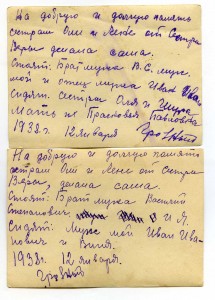 На добрую и долгую память
сестрам Оле и Лене от сестры
Веры делала сама.
Стоят: Брат мужа В.С. муж
мой и отец мужа Иван
сидят. сестра Оля и
Мать их Прасковья Павловна
1938 г. 12 января
На добрую и долгую память
сестрам Оле и Лене от сестры
Веры, делала сама.
Стоят: Брат мужа Василий
Степанович и Я.
сидят: Муж мой Иван Ива-
нович и
1938 г. 12 января.
Грозный